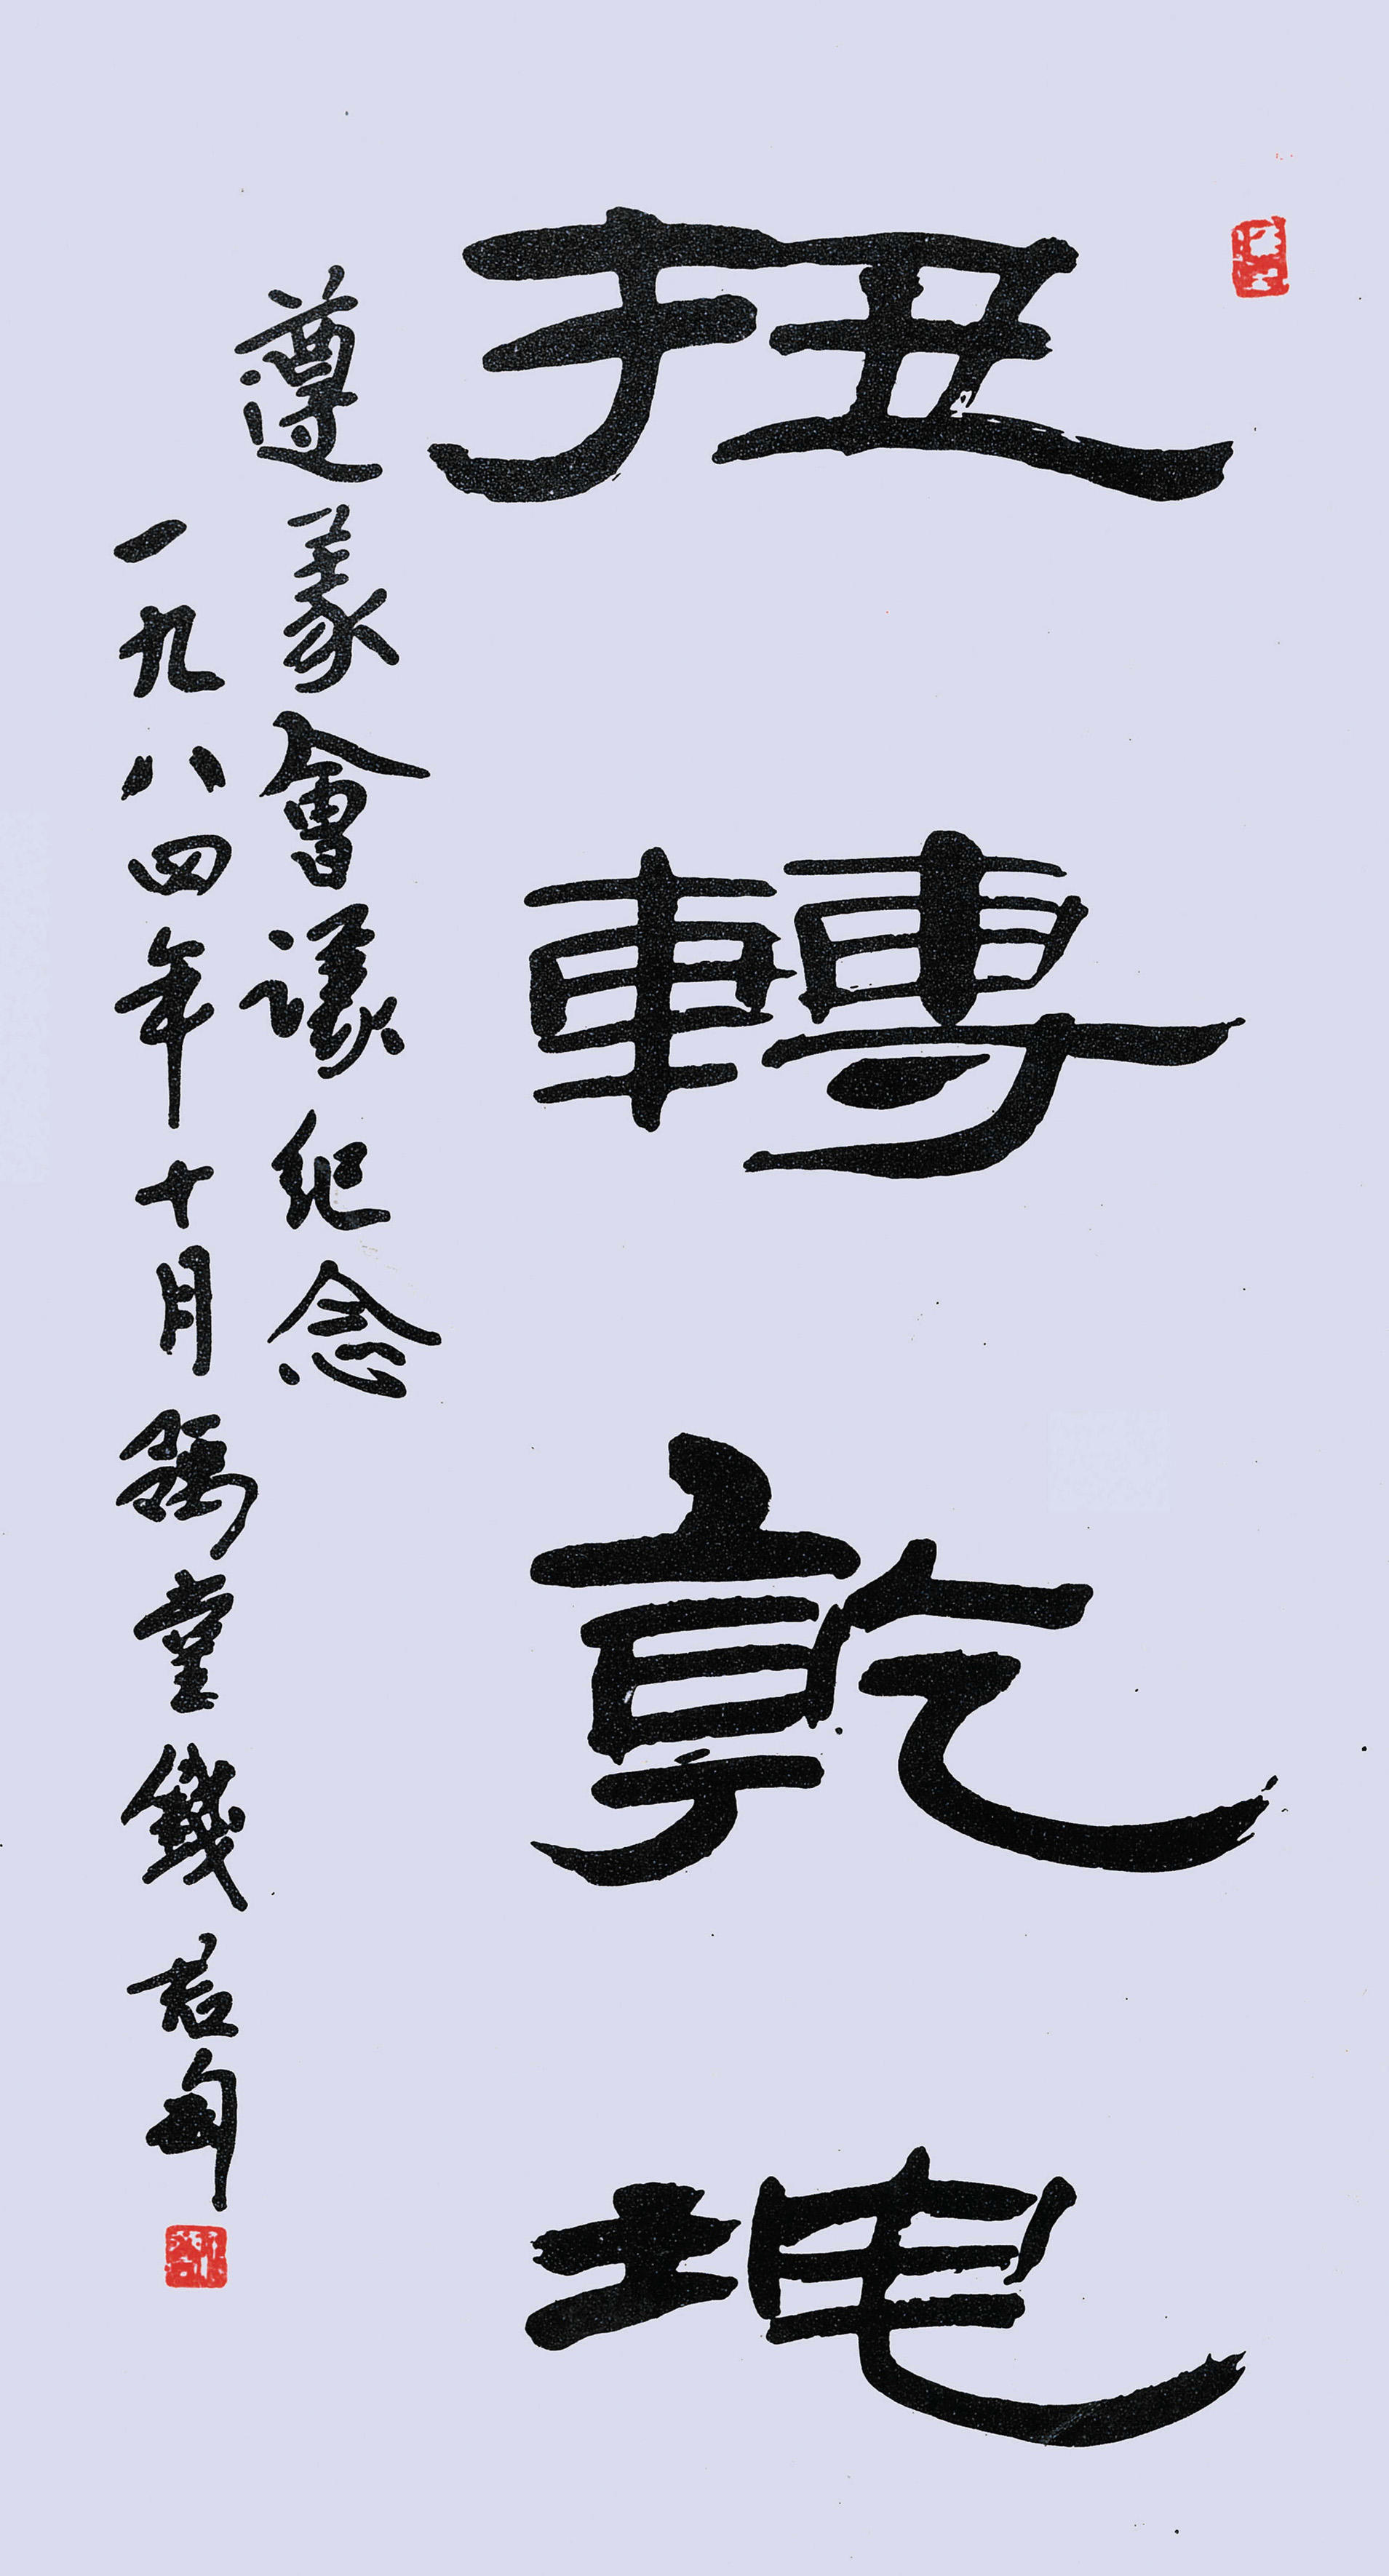 扭轉乾坤
遵義會議紀念
一九八四年十月豫堂錢君匋